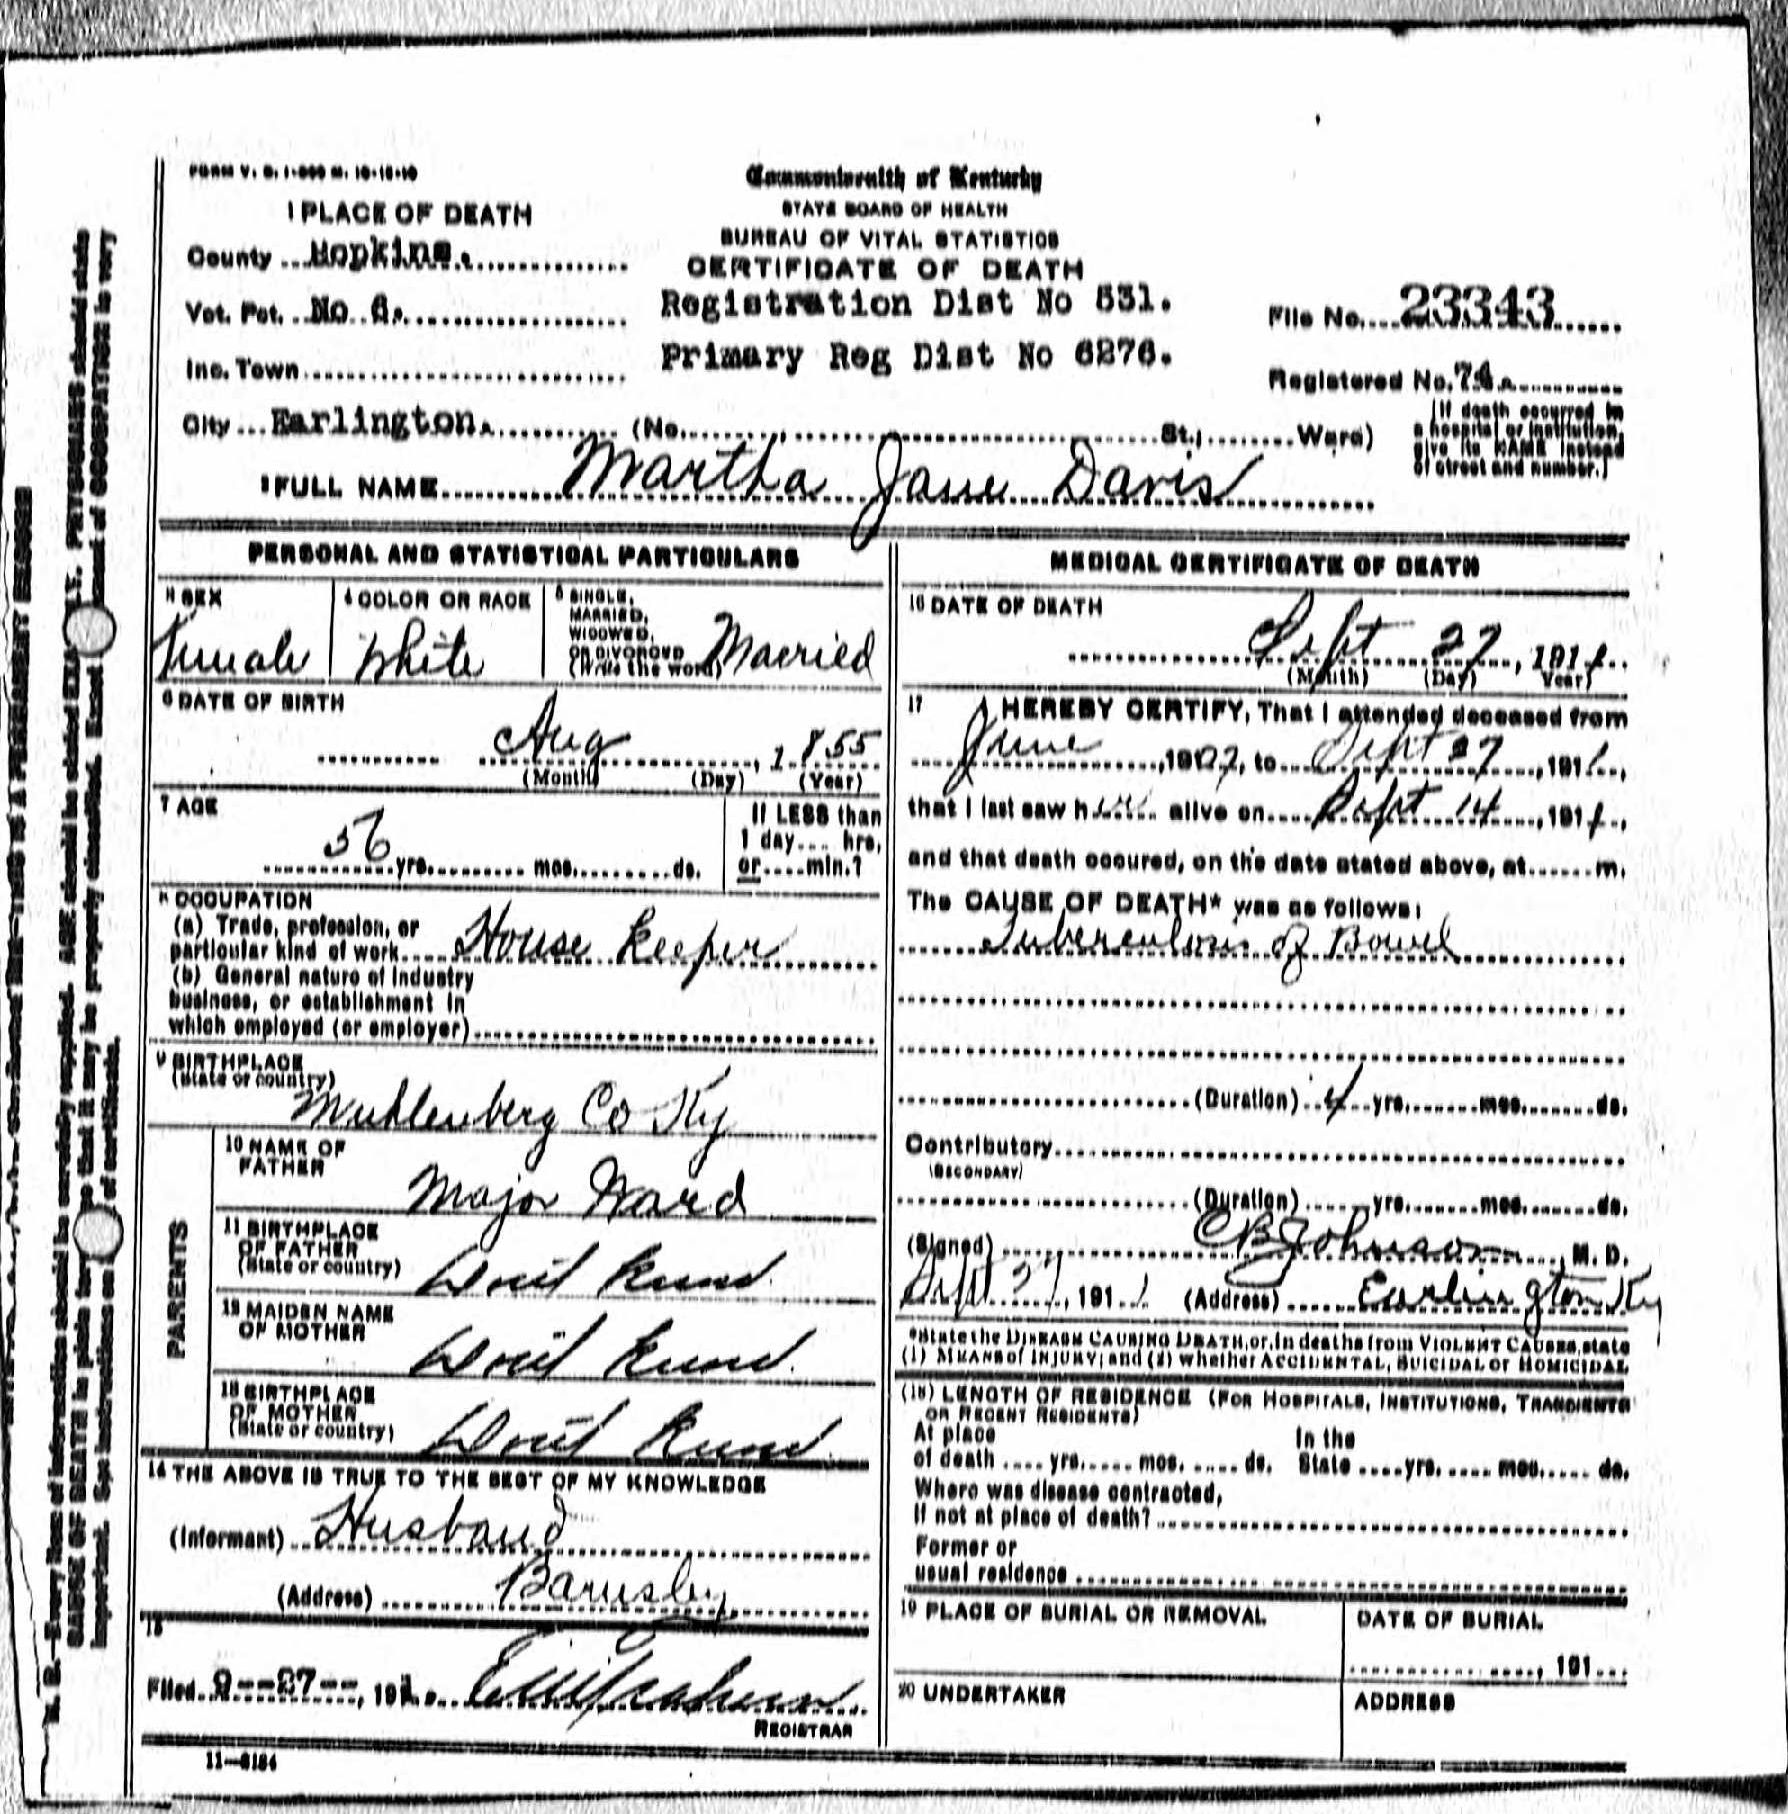 FORM V. S. 1-500 M. 10-15-10
Commonwealth of Kentucky
STATE BOARD OF HEALTH
BUREAU OF VITAL STATISTICS
CERTIFICATE OF DEATH
1 PLACE OF DEATH
County Hopkins.
Vot. Pct. No 6.
Inc. Town
City Earlington. (No. St.; Ward)
Registration Dist No 531.
Primary Reg Dist No 6276.
File No. 23343
Registered No. 74.
[If death occurred in
a hospital or institution,
give its NAME instead
of street and number.]
2 FULL NAME Martha Jane Davis
PERSONAL AND STATISTICAL PARTICULARS
3 SEX
Female
4 COLOR OR RACE
White
5 SINGLE,
MARRIED,
WIDOWED,
OR DIVORCED
(Write the word) Married
6 DATE OF BIRTH
Aug, 1855
(Month) (Day) (Year)
7 AGE
56 yrs. mos. ds.
If LESS than
1 day.... hrs,
or....min.?
8 OCCUPATION
(a) Trade, profession, or
particular kind of work House keeper
(b) General nature of Industry
business, or establishment in
which employed (or employer)
9 BIRTHPLACE
(State or country)
Muhlenberg Co Ky
PARENTS
10 NAME OF
FATHER
Major Ward
11 BIRTHPLACE
OF FATHER
(State or country) Dont know
12 MAIDEN NAME
OF MOTHER
Dont know
13 BIRTHPLACE
OF MOTHER
(State or country) Dont know
14 THE ABOVE IS TRUE TO THE BEST OF MY KNOWLEDGE
(Informant) Husband
(Address) Barnsley
15
Filed 9--27--, 1911.
REGISTRAR
11-5184
MEDICAL CERTIFICATE OF DEATH
16 DATE OF DEATH
Sept 27, 1911
(Month) (Day) Year)
17 I HEREBY CERTIFY, That I attended deceased from
June, 1907, to Sept 27, 1911,
that I last saw her alive on Sept 14, 1911,
and that death occured, on the date stated above, at......m.
The CAUSE OF DEATH* was as follows:
Tuberculosis of Bowel
(Duration) 4 yrs. mos. ds.
Contributory
(SECONDARY)
(Duration) yrs. mos. ds.
(Signed) CB Johnson, M. D.
Sept 27, 191 1 (Address) Earlington Ky
*State the DISEASE CAUSING DEATH, or, in deaths from VIOLENT CAUSES, state
(1) MEANS of INJURY; and (2) whether ACCIDENTAL, SUICIDAL or HOMICIDAL
(18) LENGTH OF RESIDENCE (FOR HOSPITALS, INSTITUTIONS, TRANSIENTS
OR RECENT RESIDENTS)
At place
of death .... yrs. .... mos. .... ds.
In the
State .... yrs. .... mos. .... ds.
Where was disease contracted,
If not at place of death?
Former or
usual residence
19 PLACE OF BURIAL OR REMOVAL
DATE OF BURIAL
, 191
20 UNDERTAKER
ADDRESS
N. B.—Every item of information should be carefully supplied. AGE should be stated PHYSICIANS should state
CAUSE OF DEATH in plain that it may be properly classified. Exact of OCCUPATION is very
important. See instructions on of certificate.